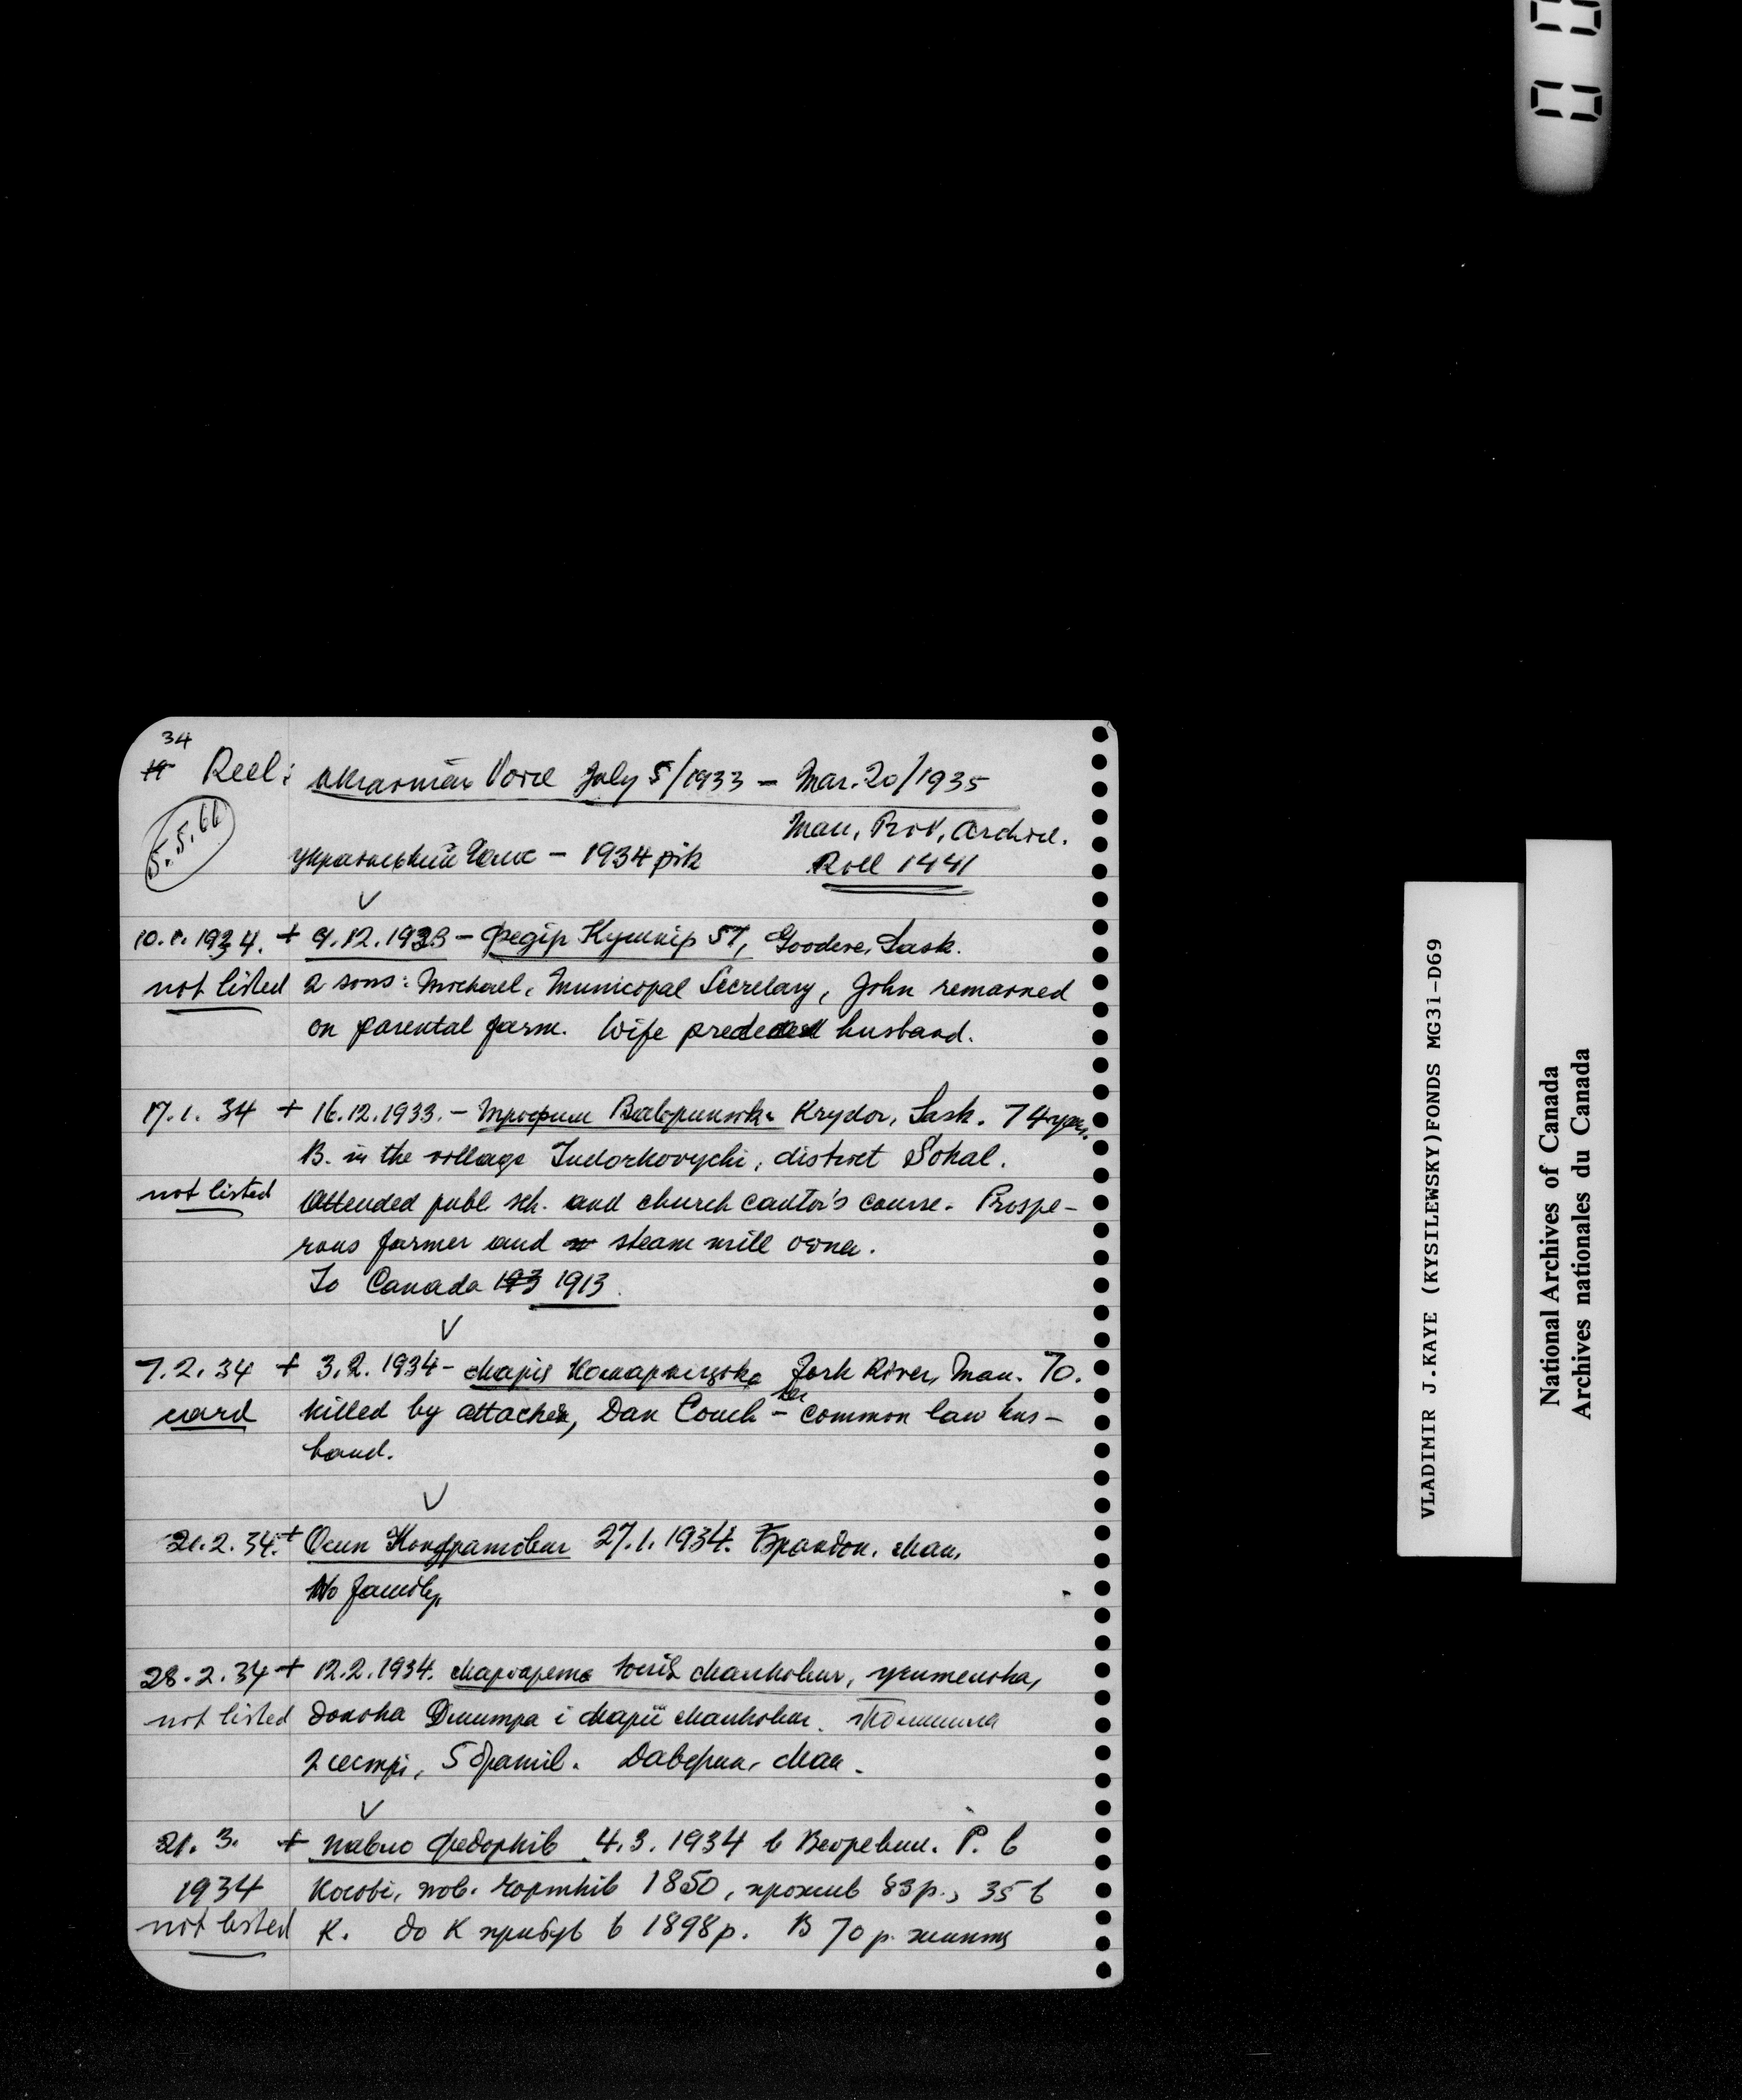 34
Reel: Ukrainian Voice July 5/1933 – Mar. 20/1935
5.5.66
Man. Prov. Archive.
Український Голос – 1934 рік Roll 1441
10.1.1934. + 9.12.1933 – Федір Кушнір 57, Goodeve, Sask.
not listed 2 sons: Michael, Municipal Secretary, John remained
on parental farm. Wife predeceased husband.
17.1.34 + 16.12.1933. – Трофим Krydor, Sask. 74 years.
B. in the village Tudorkovychi, district Sokal.
not listed Attended publ. sch. and church cantor's course. Prospe-
rous farmer and steam mill owner.
To Canada 193 1913.
7.2.34 + 3.2.1934 – Марія Комарницька Fork River, Man. 70.
card killed by attacker, Dan Couch – her common law hus-
band.
21.2.34. + Осип Кондратович 27.1.1934. Брандон, Ман.
No family.
28.2.34 + 12.2.1934. Маргарета Юлія Манкович, учителька,
not listed донька Дмитра і Марії Манкович. Полишила
2 сестрі, 5 братів. Дафрин, Ман.
21.3. + Павло Федорків 4.3.1934 в Вегревил. Р. в
1934 Косові, пов. Чортків 1850, прожив 83 р., 35 в
not listed К. До К прибув в 1898 р. В 70 р. життя
VLADIMIR J.KAYE (KYSILEWSKY)FONDS MG31-D69
National Archives of Canada
Archives nationales du Canada